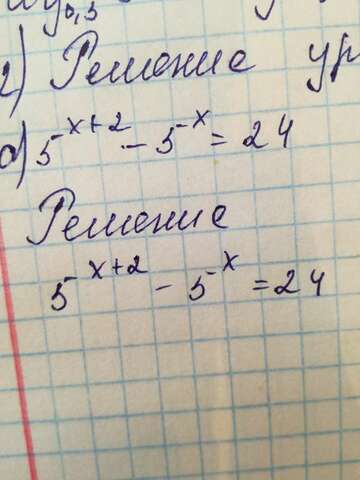 2) Решение ур
а) 5^{x+2} - 5^x = 24
Решение
5^{x+2} - 5^x = 24